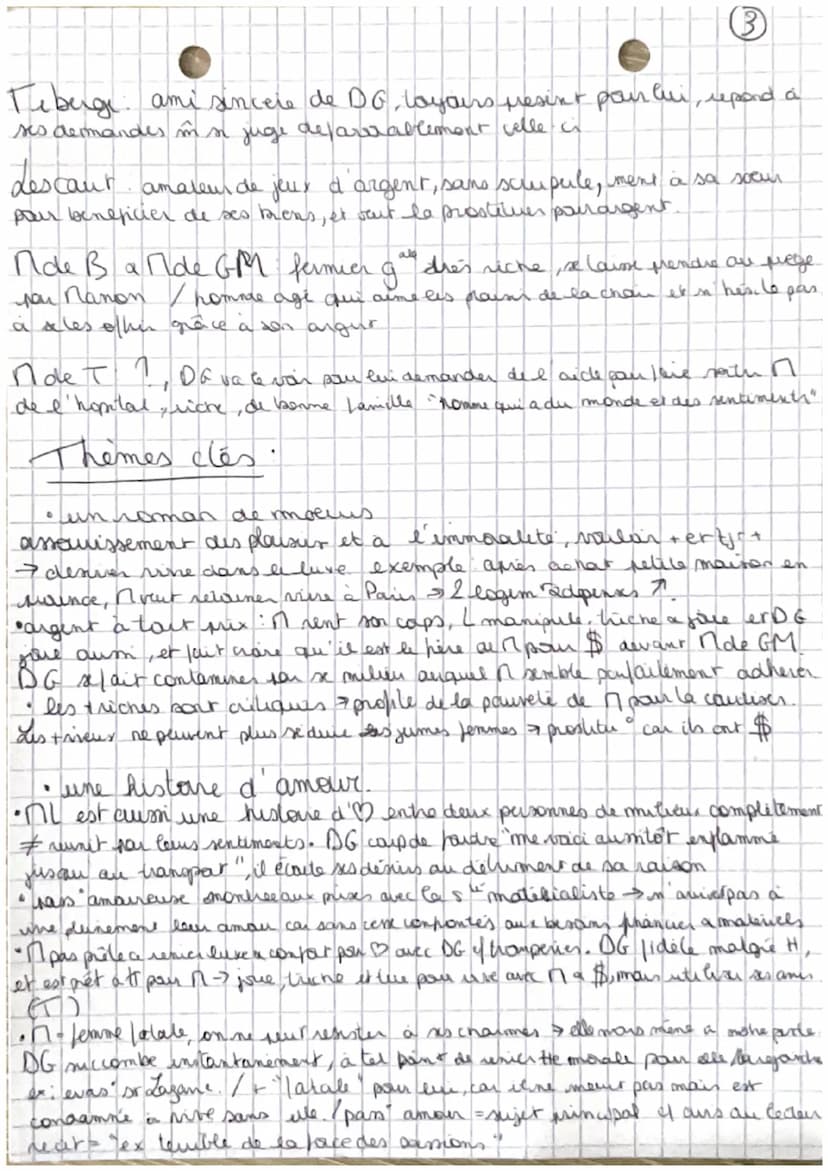 ③
Tiberge : ami sincère de DG, toujours présent pour lui, répond à
ses demandes m̂ si juge défavorablement celle ci
Lescaut : amateur de jeux d'argent, sans scrupule, ment à sa soeur
pour bénéficier de ses biens, et veut la prostituer pour argent.
M de B a M de GM : fermier g^ale très riche, se laisse prendre au piège
par Manon / homme agé qui aime les plaisirs de la chair et n'hésite pas
à se les offrir grâce à son argent
M de T ?, DG va le voir pour lui demander de l'aide pour faire sortir M
de l'hopital, riche, de bonne famille "homme qui a du monde et des sentiments"
Thèmes clés :
• un roman de moeurs
assouvissement des plaisirs et à l'immoralité, vouloir + et tjrs +
→ désirer vivre dans le luxe exemple : après achat petite maison en
M veut retourner vivre à Paris ⇒ 2 logem dépenses ↗.
• argent à tout prix : M vent son corps, L manipule, triche a joue et DG
joue aussi, et fait croire qu'il est le frère de M pour $ devant M de GM.
DG se fait contaminer par se milieu auquel M semble parfaitement adhérer
• les + riches sont critiqués → profite de la pauveté de M pour la
Les + vieux ne peuvent plus séduire jeunes femmes → prostitu° car ils ont $
• une histoire d'amour.
• ML est aussi une histoire d'♡ entre deux personnes de milieux complètement
≠ réunit par leurs sentiments. DG coup de foudre "me voici aussitôt enflammé
jusqu au transport", il écoute ses désirs au détriment de sa raison
• pass° amoureuse montrée aux prises avec la s^té matérialiste → n'arrive pas à
vivre pleinement leur amour car sans cesse confrontés aux besoins financier a matériels
• M pas prête a renier luxe a confort pour ♡ avec DG tromperies. DG fidèle malgré
et est prêt à tt pour M → joue, triche et tue pour vivre avec M a $, mais utilise ses amis
(T)
• M = femme fatale, on ne peut résister à ses charmes → elle nous mène à notre perte
DG succombe instantanément, à tel point de renier tte morale pour elle
ex : evas° St Lazare. / + "fatale" pour lui, car il ne meurt pas mais est
condamné à vivre sans elle. / pass° amour = sujet principal cf avis au lecteur
récit = "ex terrible de la force des passions"